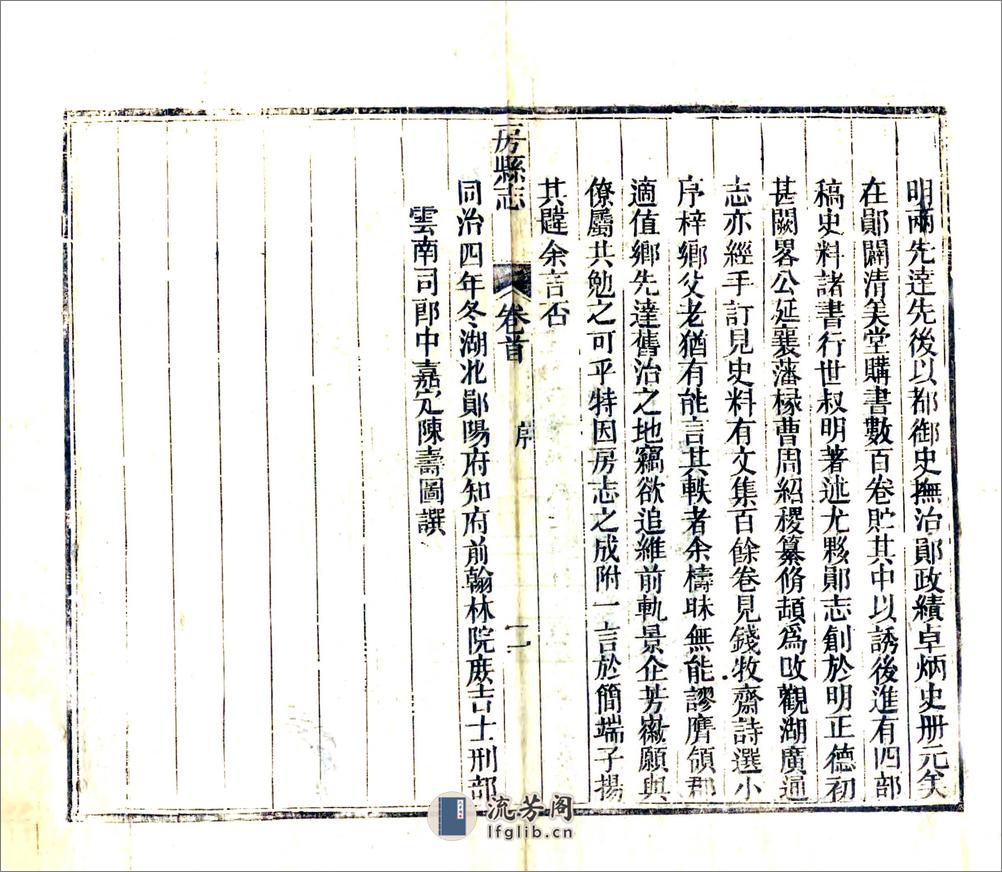 明兩先達先後以都御史撫治鄖政績卓炳史册元美
在鄖闢清美堂購書數百卷貯其中以誘後進有四部
稿史料諸書行世叔明著述尤夥鄖志創於明正德初
甚闕畧公延襄藩椽曹周紹稷纂脩頡爲改觀湖廣通
志亦經手訂見史料有文集百餘卷見錢牧齋詩選小
序梓鄉父老猶有能言其軼者余檮昧無能謬膺領郡
適值鄉先達舊治之地竊欲追維前軌景企芳徽願與
僚屬共勉之可乎特因房志之成附一言於簡端子揚
其韙余言否
房縣志
卷首
序
二
同治四年冬湖北鄖陽府知府前翰林院庶吉士刑部
雲南司郎中嘉定陳壽圖譔
流芳阁
lfglib.cn